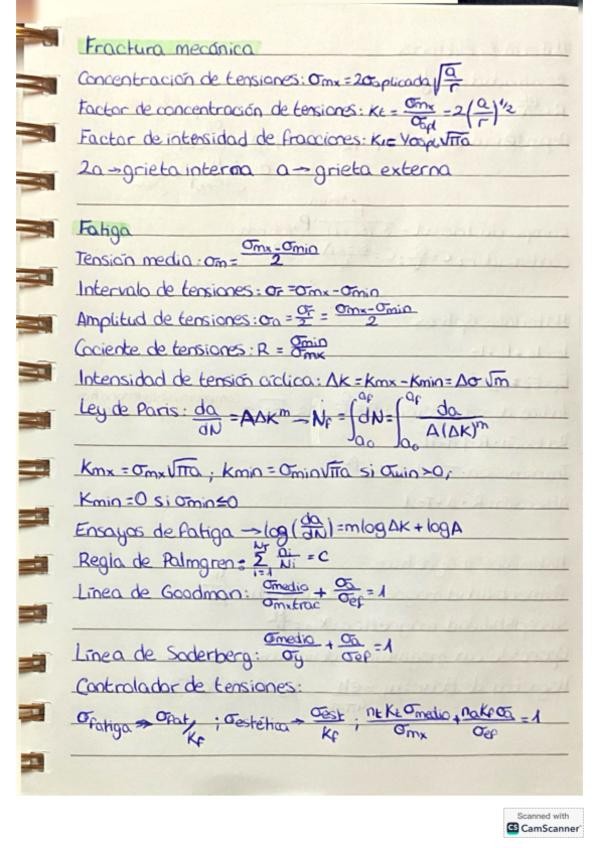 Fractura mecánica
Concentración de tensiones: σmx = 2σaplicada √(a/r)
Factor de concentración de tensiones: Kt = σmx/σapl = 2(a/r)^1/2
Factor de intensidad de fracciones: K1 = Yσapl √πa
2a → grieta interna a → grieta externa
Fatiga
Tensión media: σm = (σmx - σmin)/2
Intervalo de tensiones: σr = σmx - σmin
Amplitud de tensiones: σa = σr/2 = (σmx - σmin)/2
Cociente de tensiones: R = σmin/σmx
Intensidad de tensión cíclica: ΔK = Kmx - Kmin = Δσ √m
Ley de Paris: da/dN = AΔK^m → Nf = ∫dN = ∫_{a0}^{af} da/(A(ΔK)^m)
Kmx = σmx √πa ; Kmin = σmin √πa si σmin > 0;
Kmin = 0 si σmin ≤ 0
Ensayos de fatiga → log(da/dN) = m log ΔK + log A
Regla de Palmgren: Σ_{i=1}^{Nf} ni/Ni = C
Línea de Goodman: σmedia/σmxtrac + σa/σef = 1
Línea de Soderberg: σmedia/σy + σa/σef = 1
Controlador de tensiones:
σfatiga → σfat/Kf ; σestética → σest/Kf ; nt Kt σmedia/σmx + na Kf σa/σef = 1
Scanned with
CS CamScanner